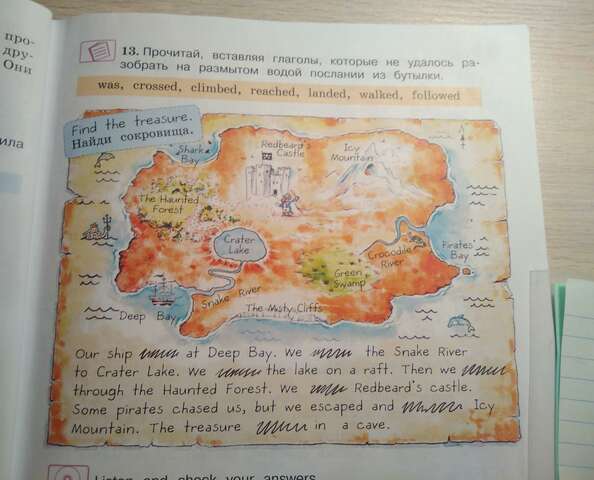 про-
дру-
Они
ила
13. Прочитай, вставляя глаголы, которые не удалось ра-
зобрать на размытом водой послании из бутылки.
was, crossed, climbed, reached, landed, walked, followed
Find the treasure.
Найди сокровища.
Shark
Bay
Redbeard's
Castle
Icy
Mountain
The Haunted
Forest
Crater
Lake
Crocodile
River
Pirates'
Bay
Green
Swamp
Snake River
The Misty Cliffs
Deep Bay
Our ship at Deep Bay. We the Snake River
to Crater Lake. We the lake on a raft. Then we
through the Haunted Forest. We Redbeard's castle.
Some pirates chased us, but we escaped and Icy
Mountain. The treasure in a cave.
Listen and check your answers.